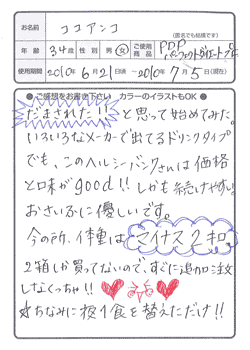 お名前 ココアンコ
(匿名でも結構です)
年齢 34歳 性別 男・女 ご使用商品 PDP パーフェクトダイエットプ
使用期間 2010年6月21日頃 ~2010年7月5日(現在)
●ご感想をお書き下さい カラーのイラストもOK●
だまされた!!と思って始めてみた。
いろいろなメーカーで出てるドリンクタイプ
でも、このヘルシーバンクさんは価格
と味がgood!! しかも続けやすい!
おさいふに優しいです。
今の所、体重はマイナス2キロ
2箱しか買ってないので、すぐに追加注文
しなくっちゃ!!
☆ちなみに夜1食を替えただけ!!